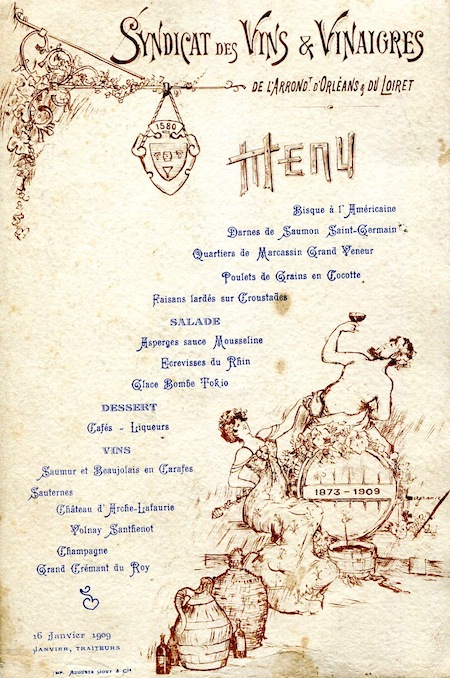 SYNDICAT DES VINS & VINAIGRES
DE L'ARRONDT D'ORLÉANS & DU LOIRET
1580
MENU
Bisque à l'Américaine
Darnes de Saumon Saint-Germain
Quartiers de Marcassin Grand Veneur
Poulets de Grains en Cocotte
Faisans lardés sur Croustades
SALADE
Asperges sauce Mousseline
Ecrevisses du Rhin
Glace Bombe Tokio
DESSERT
Cafés - Liqueurs
VINS
Saumur et Beaujolais en Carafes
Sauternes
Château d'Arche-Lafaurie
Volnay Santhenot
Champagne
Grand Crémant du Roy
1873-1909
16 Janvier 1909
JANVIER, TRAITEURS
IMP. AUGUSTE GOUT & Cie